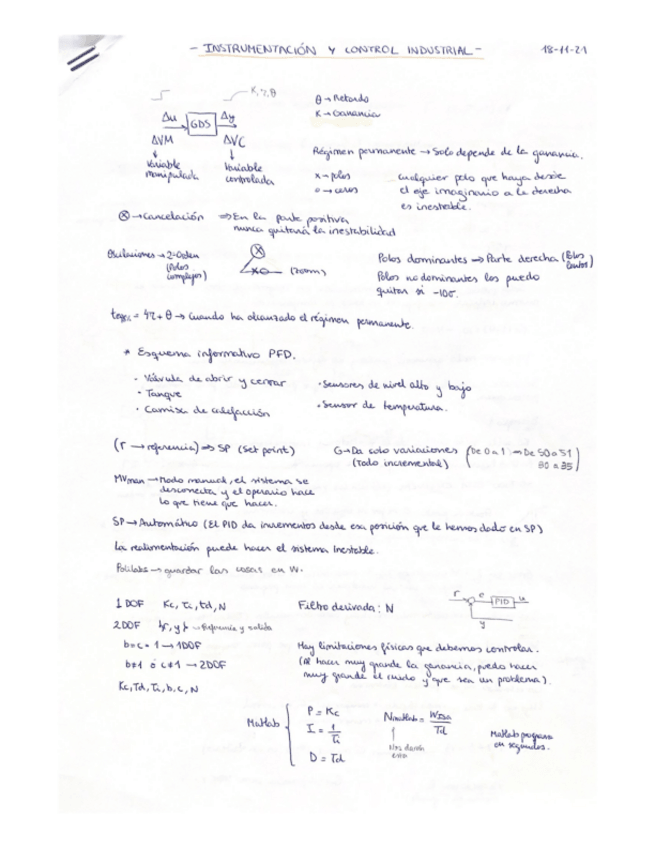 - INSTRUMENTACIÓN Y CONTROL INDUSTRIAL -
18-11-21
K, τ, θ
θ → Retardo
K → Ganancia
Δu GDS Δy
ΔVM ΔVC
Variable manipulada
Variable controlada
Régimen permanente → Solo depende de la ganancia.
x → polos
o → ceros
cualquier polo que haya desde
el eje imaginario a la derecha
es inestable.
⊗ → Cancelación ⇒ En la parte positiva
nunca quitaría la inestabilidad
Oscilaciones → 2º Orden
(Polos complejos)
(zoom)
Polos dominantes → Parte derecha (Polos lentos)
Polos no dominantes los puedo
quitar si -10σ.
= 4τ + θ → Cuando ha alcanzado el régimen permanente.
* Esquema informativo PFD.
· Válvula de abrir y cerrar
· Tanque
· Camisa de calefacción
· Sensores de nivel alto y bajo
· Sensor de temperatura.
(r → referencia) ⇒ SP (Set point)
G → Da solo variaciones (De 0 a 1 → De 50 a 51
(Todo incremental) 30 a 35)
MVman → Modo manual, el sistema se
desconecta y el operario hace
lo que tiene que hacer.
SP → Automático (El PID da incrementos desde esa posición que le hemos dado en SP)
La realimentación puede hacer el sistema Inestable.
Polilabs → guardar las cosas en W.
1DOF Kc, Ti, Td, N
Filtro derivada: N
r e PID u
y
2DOF r, y → Referencia y salida
b=c=1 → 1DOF
b≠1 ó c≠1 → 2DOF
Kc, Td, Ti, b, c, N
Hay limitaciones físicas que debemos controlar.
(Al hacer muy grande la ganancia, puedo hacer
muy grande el ruido y que sea un problema).
Matlab
P = Kc
I = 1/Ti
D = Td
Nmatlab = /Td
Nos darán esto
Matlab programa
en segundos.